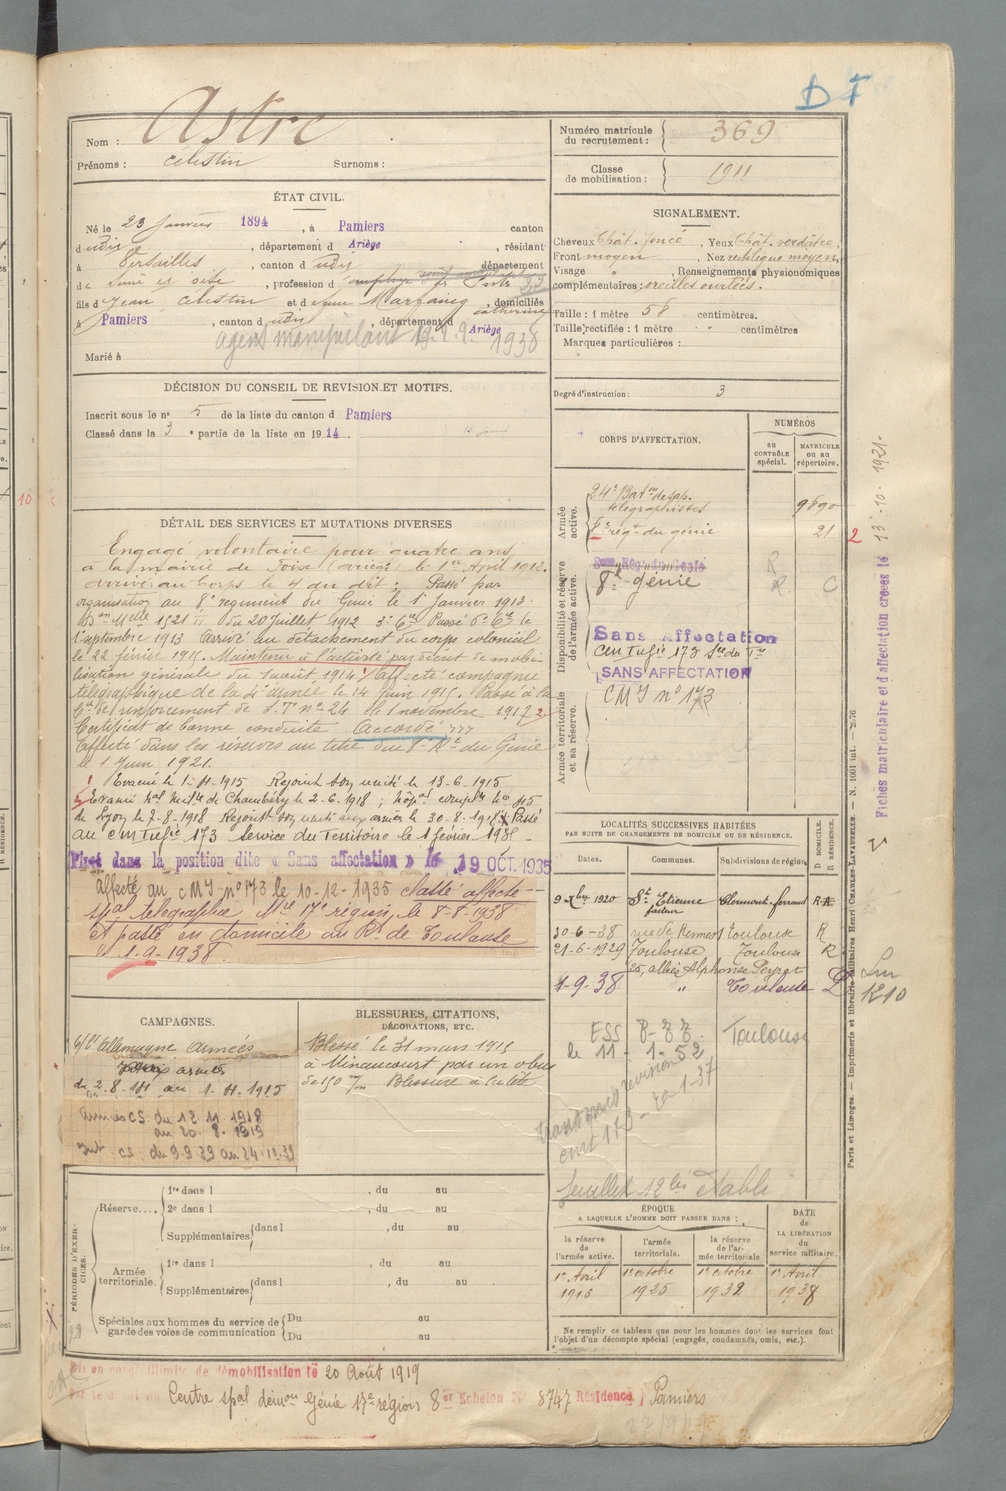 D I
Nom : Astre
Prénoms : Célestin Surnoms :
ÉTAT CIVIL.
Né le 23 Janvier 1894, à Pamiers canton
dudit, département d Ariège, résidant
à Versailles, canton dudit département
de Seine et Oise, profession d employé
fils d Jean Célestin et de domiciliés
Catherine
à Pamiers, canton dudit, département d Ariège
agent manipulant 1938
Marié à
DÉCISION DU CONSEIL DE REVISION ET MOTIFS.
Inscrit sous le n° 5 de la liste du canton d Pamiers
Classé dans la 3e partie de la liste en 1914.
DÉTAIL DES SERVICES ET MUTATIONS DIVERSES
Engagé volontaire pour quatre ans
à la mairie de Foix (Ariège) le 1er Avril 1912.
Arrivé au Corps le 4 du dit. Passé par
organisation au 8e régiment du Génie le 1er Janvier 1913.
du 20 Juillet 1912 Passé le
1er septembre 1913 Arrivé au détachement du corps colonial
le 22 février 1915. Maintenu à l'activité par décret de mobi-
lisation générale du 1 août 1914 Affecté compagnie
télégraphique de la 4e armée le 14 Juin 1915. Passé à la
Cie de renforcement de S.T. n° 24 le 1 novembre 1917
Certificat de bonne conduite Accordé
Affecté dans les réserves au titre du 8e Rt du Génie
le 1 Juin 1921.
Evacué le 1-4-1915 Rejoint son unité le 13-6-1915
Evacué hal de Chambéry le 2.6.1918 ; hôpal n° 45
de Lyon le 7-8-1918 Rejoint son unité aux armées le 30-8-1918 Passé
au 173 Service du Territoire le 1 février 19
Placé dans la position dite « Sans affectation » le 19 OCT. 1935
affecté au CMI n° 173 le 10-12-1935 Classé affecté
spal télégraphie 17e région, le 8-8-1938
et passé en domicile au Rt de Toulouse
le 1-9-1938.
CAMPAGNES.
c/ l'Allemagne Armées
du 2-8-14 au 1-4-1915
Armées CS. du 12 11 1918
au 20.8.1919
Int. CS. du 9.9.39 au
BLESSURES, CITATIONS,
DÉCORATIONS, ETC.
Blessé le 31 mars 1915
à Minaucourt par un obus
de 150 m/m Blessure à la tête
PÉRIODES D'EXERCICES.
Réserve....
1re dans l , du au
2e dans l , du au
Supplémentaires dans l , du au
Armée territoriale.
1re dans l , du au
Supplémentaires dans l , du au
Spéciales aux hommes du service de garde des voies de communication
Du au
Du au
Mis en congé illimité de démobilisation le 20 Août 1919
Par le Centre spal démou Génie 17e région 8er Echelon N° 8747 Résidence Pamiers
Numéro matricule du recrutement : 369
Classe de mobilisation : 1911
SIGNALEMENT.
Cheveux Chât. foncé, Yeux Chât. verdâtre,
Front moyen, Nez rectiligne moyen,
Visage " , Renseignements physionomiques
complémentaires : oreilles ourlées.
Taille : 1 mètre 58 centimètres.
Taille rectifiée : 1 mètre " centimètres
Marques particulières :
Degré d'instruction : 3
CORPS D'AFFECTATION.
NUMÉROS
AU CONTRÔLE spécial.
MATRICULE OU AU répertoire.
Armée active.
24e Baton de sap.
télégraphistes 9890
8e régt du génie 21 2
Disponibilité et réserve de l'armée active.
8e Génie R C
Sans Affectation
173 Sce du Tre
SANS AFFECTATION
CMI n° 173
Armée territoriale et sa réserve.
LOCALITÉS SUCCESSIVES HABITÉES
PAR SUITE DE CHANGEMENTS DE DOMICILE OU DE RÉSIDENCE.
Dates. Communes. Subdivisions de région. D DOMICILE. R RÉSIDENCE.
9 Xbre 1920 St Etienne Clermont-ferrand R
facteur
30-6-38 rue de Toulouse R
21-6-1929 Toulouse Toulouse R
25, allées Alphonse Peyrat
1-9-38 " Toulouse D
Toulouse
le 11-1-52
feuillet 12 bis établi
ÉPOQUE
A LAQUELLE L'HOMME DOIT PASSER DANS :
la réserve de l'armée active. l'armée territoriale. la réserve de l'armée territoriale
DATE de LA LIBÉRATION du service militaire.
1er Avril 1915
1er octobre 1925
1er octobre 1932
1er Avril 1938
Ne remplir ce tableau que pour les hommes dont les services font
l'objet d'un décompte spécial (engagés, condamnés, omis, etc.).
Fiches matriculaire et d'affectation créées le 13-10-1921.
Paris et Limoges. — Imprimerie et librairie militaires Henri CHARLES-LAVAUZELLE.